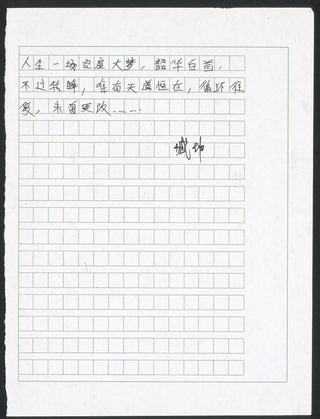 人生一场虚度大梦，韶华白首，
不过转瞬，唯有天道恒在，循环往
复，未曾更改……
城坤